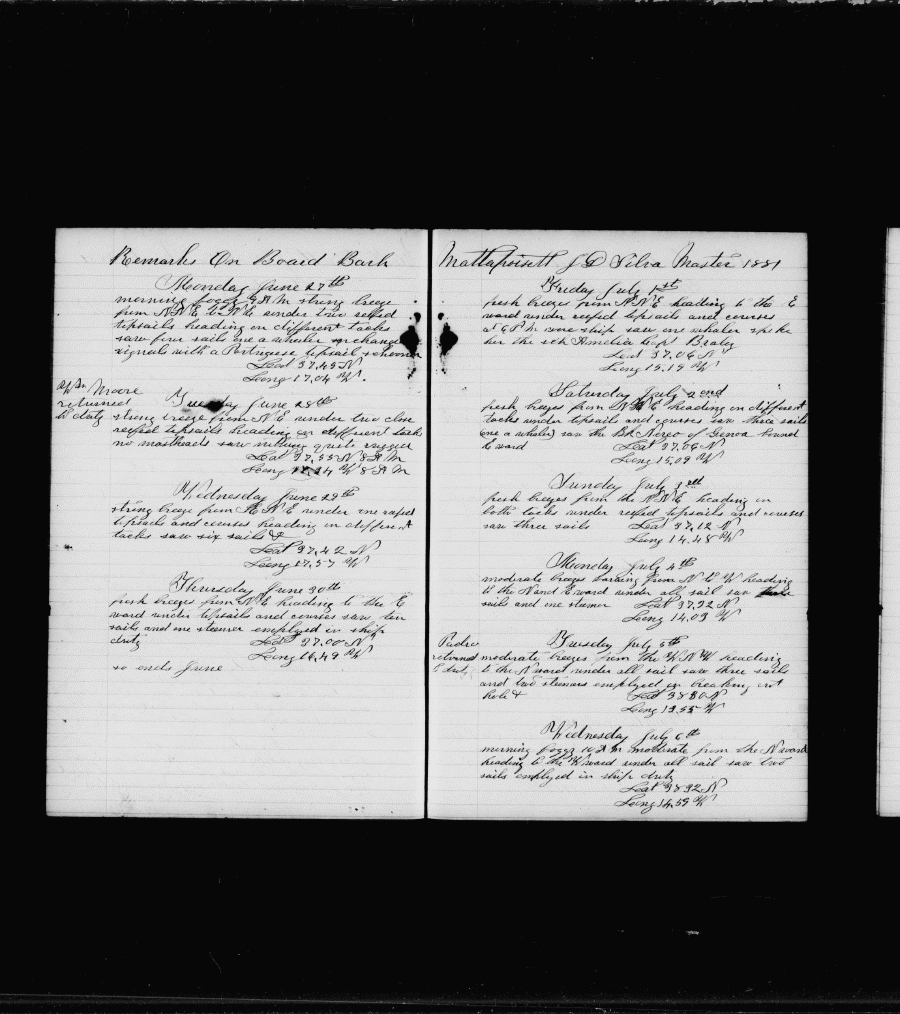 Remarks On Board Bark
Monday June 27th
morning foggy 9 A M strong breeze
from N N E to N E under two reefed
topsails heading on different tacks
saw four sails one a whaler exchanged
signals with a Portuguese topsail schooner
Lat 37,45 N
Long 17,04 W.
Moore
returned
to duty
Tuesday June 28th
strong breeze from N E under two close
reefed topsails heading on different tacks
no mastheads saw nothing quite rugged
Lat 37,55 N 8 A M
Long 17,24 W 8 A M
Wednesday June 29th
strong breeze from N E under one reefed
topsails and courses heading on different
tacks saw six sails &
Lat 37,42 N
Long 17,57 W
Thursday June 30th
fresh breezes from N E heading to the E
ward under topsails and courses saw ten
sails and one steamer employed in ship
duty
Lat 37.00 N
Long 16,49 W
so ends June
Mattapoisett J D Silva Master 1881
Friday July 1st
fresh breezes from N N E heading to the E
ward under reefed topsails and courses
at 6 P M wore ship saw one whaler spoke
her the sch Amelia Capt
Lat 37.06 N
Long 15,19 W
Saturday July 2nd
fresh breezes from N N E heading on different
tacks under topsails and courses saw three sails
(one a whaler) saw the Bk of Genoa bound
E ward
Lat 37.06 N
Long 15,09 W
Sunday July 3rd
fresh breezes from the N N E heading on
both tacks under reefed topsails and courses
saw three sails
Lat 37,12 N
Long 14,48 W
Monday July 4th
moderate breezes from N to W heading
to the N and E ward under all sail saw
sails and one steamer
Lat 37,22 N
Long 14,03 W
Pedro
returned
to duty
Tuesday July 5th
moderate breezes from the W N W heading
to the N ward under all sail saw three sails
and two steamers employed in breaking out
hole &
Lat 38 30 N
Long 13,55 W
Wednesday July 6th
morning foggy 10 A M moderate from the N ward
heading to the W ward under all sail saw two
sails employed in ship duty
Lat 38 32 N
Long 14,59 W